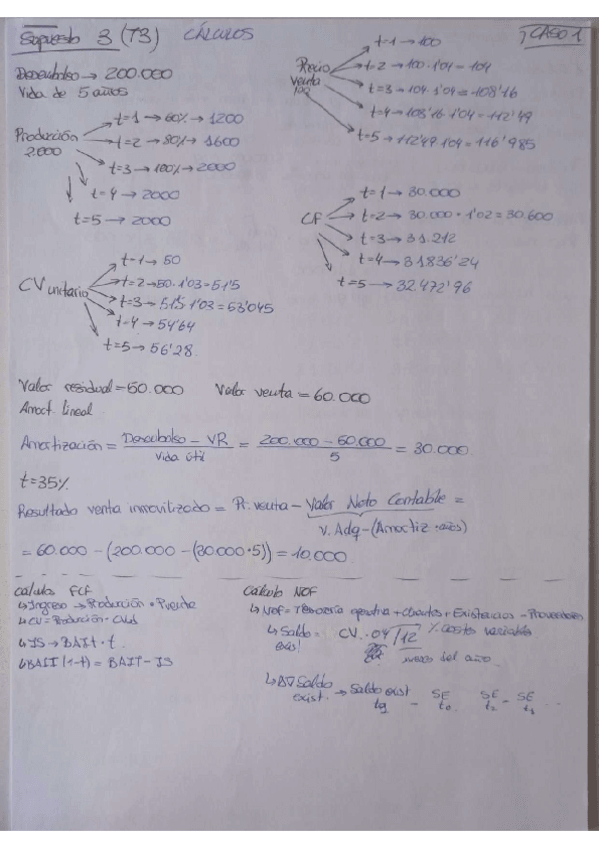 Supuesto 3 (T3) CÁLCULOS
¡CASO 1
Desembolso → 200.000
Vida de 5 años
Producción 2.000
t=1 → 60% → 1200
t=2 → 80% → 1600
t=3 → 100% → 2000
t=4 → 2000
t=5 → 2000
Precio venta
t=1 → 100
t=2 → 100·1'04 = 104
t=3 → 104·1'04 = 108'16
t=4 → 108'16·1'04 = 112'49
t=5 → 112'49·1'04 = 116'985
CV unitario
t=1 → 50
t=2 → 50·1'03 = 51'5
t=3 → 51'5·1'03 = 53'045
t=4 → 54'64
t=5 → 56'28
CF
t=1 → 30.000
t=2 → 30.000·1'02 = 30.600
t=3 → 31.212
t=4 → 31836'24
t=5 → 32.472'96
Valor residual = 50.000 Valor venta = 60.000
Amort. lineal
Amortización = Desembolso - VR / Vida útil = 200.000 - 50.000 / 5 = 30.000
t=35%
Resultado venta inmovilizado = Pr. venta - Valor Neto Contable =
V. Adq - (Amortiz · años)
= 60.000 - (200.000 - (30.000·5)) = 10.000
Cálculos FCF
↳ Ingreso → Producción · Pventa
↳ CV = Producción · CVu
↳ IS → BAIT · t
↳ BAIT (1-t) = BAIT - IS
Cálculo NOF
↳ NOF = Tesorería operativa + Clientes + Existencias - Proveedores
↳ Saldo exis! = CV · 04/12 % costes variables
meses del año
↳ Δ∇ Saldo exist. → Saldo exist t1 - SE t0 SE t2 - SE t1 ...